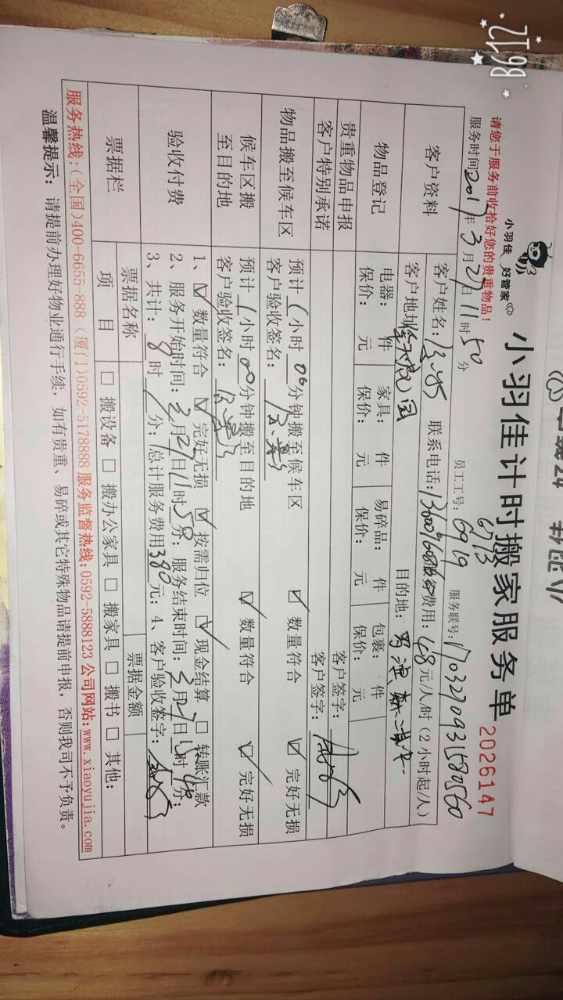 B612
小羽佳 好管家
小羽佳计时搬家服务单
2026147
请您于服务前收拾好您的贵重物品！
6713
服务时间2017年3月27日11时50分 员工工号：6919 服务联号：1703270931580560
客户资料
客户姓名： 联系电话： 费用：48元/人/时（2小时起/人）
客户地址： 目的地：
物品登记
电器： 件 家具： 件 易碎品： 件 包裹： 件
保价： 元 保价： 元 保价： 元 保价： 元
贵重物品申报 客户签字：
客户特别承诺 客户签字：
物品搬至候车区
预计1小时00分钟搬至候车区 ☑ 数量符合 ☑ 完好无损
客户验收签名：
候车区搬至目的地
预计1小时00分钟搬至目的地 ☑ 数量符合 ☑ 完好无损
客户验收签名：
验收付费
1、☑ 数量符合 ☑ 完好无损 ☑ 按需归位 ☑ 现金结算 □ 转账汇款
2、服务开始时间：3月27日11时50分；服务结束时间：3月27日 时 分；
3、共计：8时 分；总计服务费用380元；4、客户验收签字：
票据栏
票据名称 票据金额
项 目 □ 搬设备 □ 搬办公家具 □ 搬家具 □ 搬书 □ 其他：
服务热线：（全国）400-6655-888（厦门）0592-5178888 服务监督热线：0592-5888123 公司网站：www.xiaoyujia.com
温馨提示：请提前办理好物业通行手续，如有贵重、易碎或其它特殊物品请提前申报，否则我司不予负责。